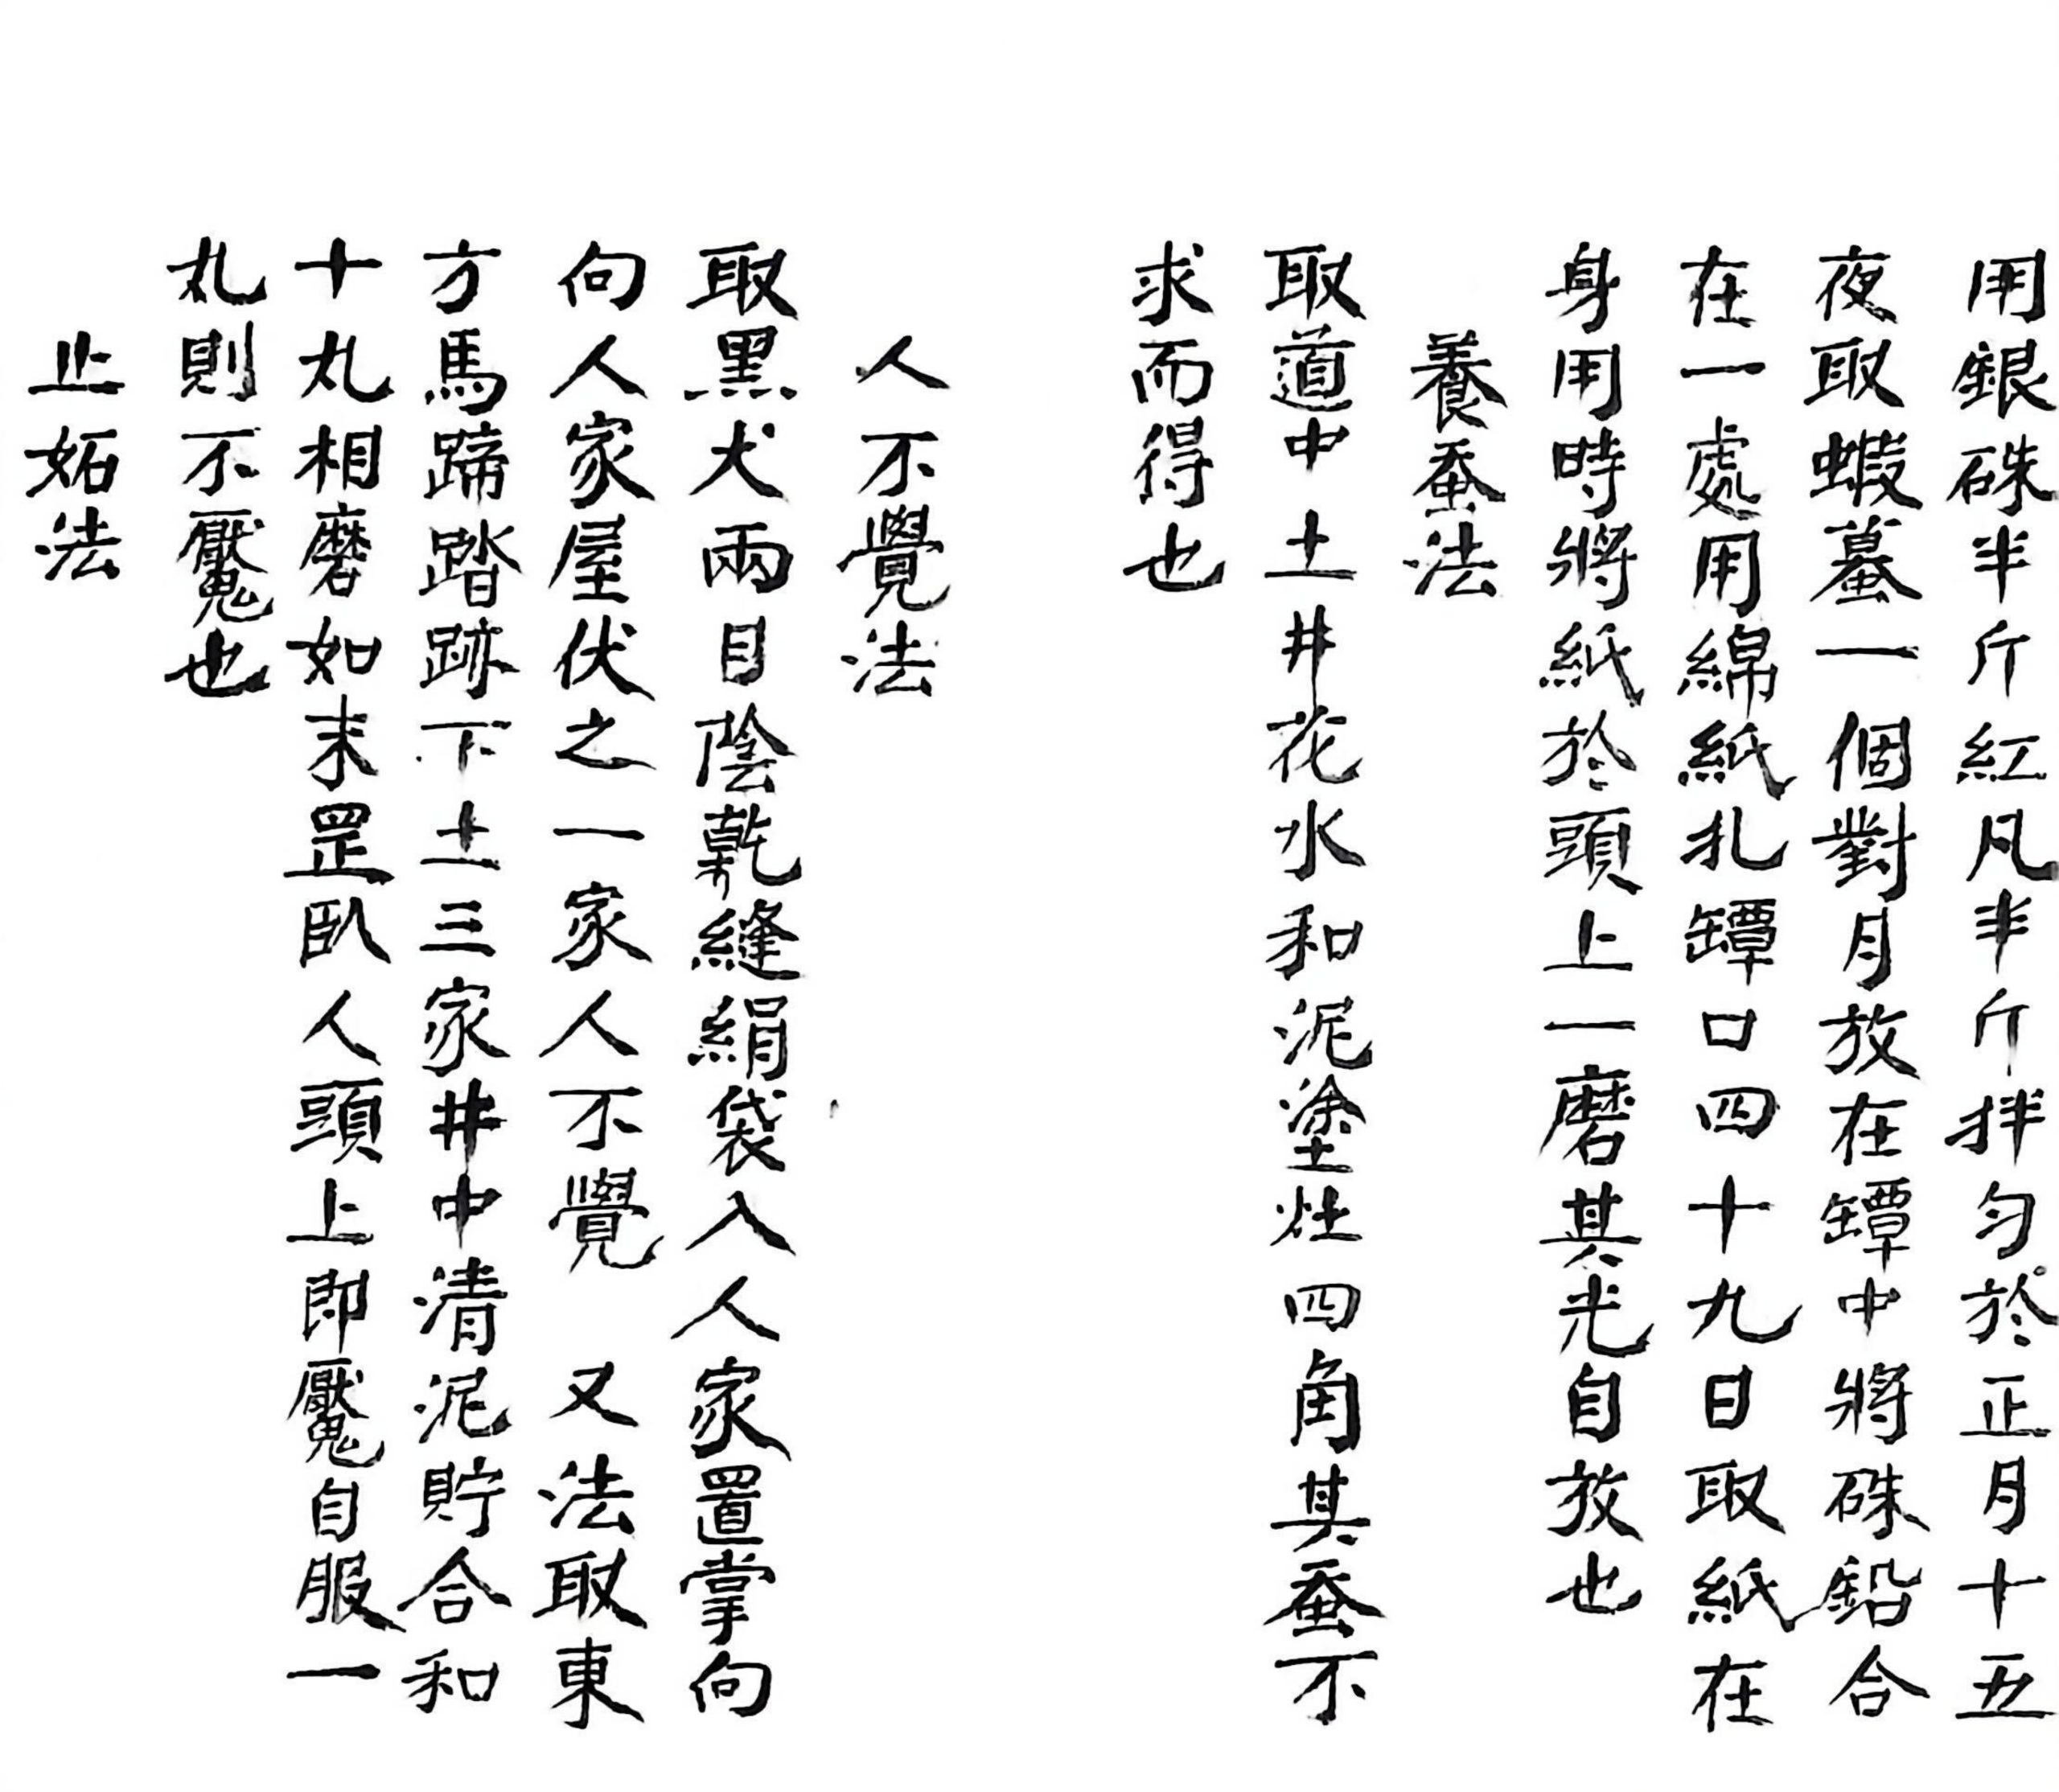 用銀硃半斤紅凡半斤拌匀於正月十五
夜取蝦蟇一個對月放在罈中將硃鉛合
在一處用綿紙扎罈口四十九日取紙在
身用時將紙於頭上一磨其光自放也
養蚕法
取道中土井花水和泥塗灶四角其蚕不
求而得也
人不覺法
取黑犬兩目陰乾縫絹袋入人家置掌向
向人家屋伏之一家人不覺 又法取東
方馬蹄踏跡下土三家井中清泥貯合和
十丸相磨如末罡臥人頭上即魘自服一
丸則不魘也
止妬法